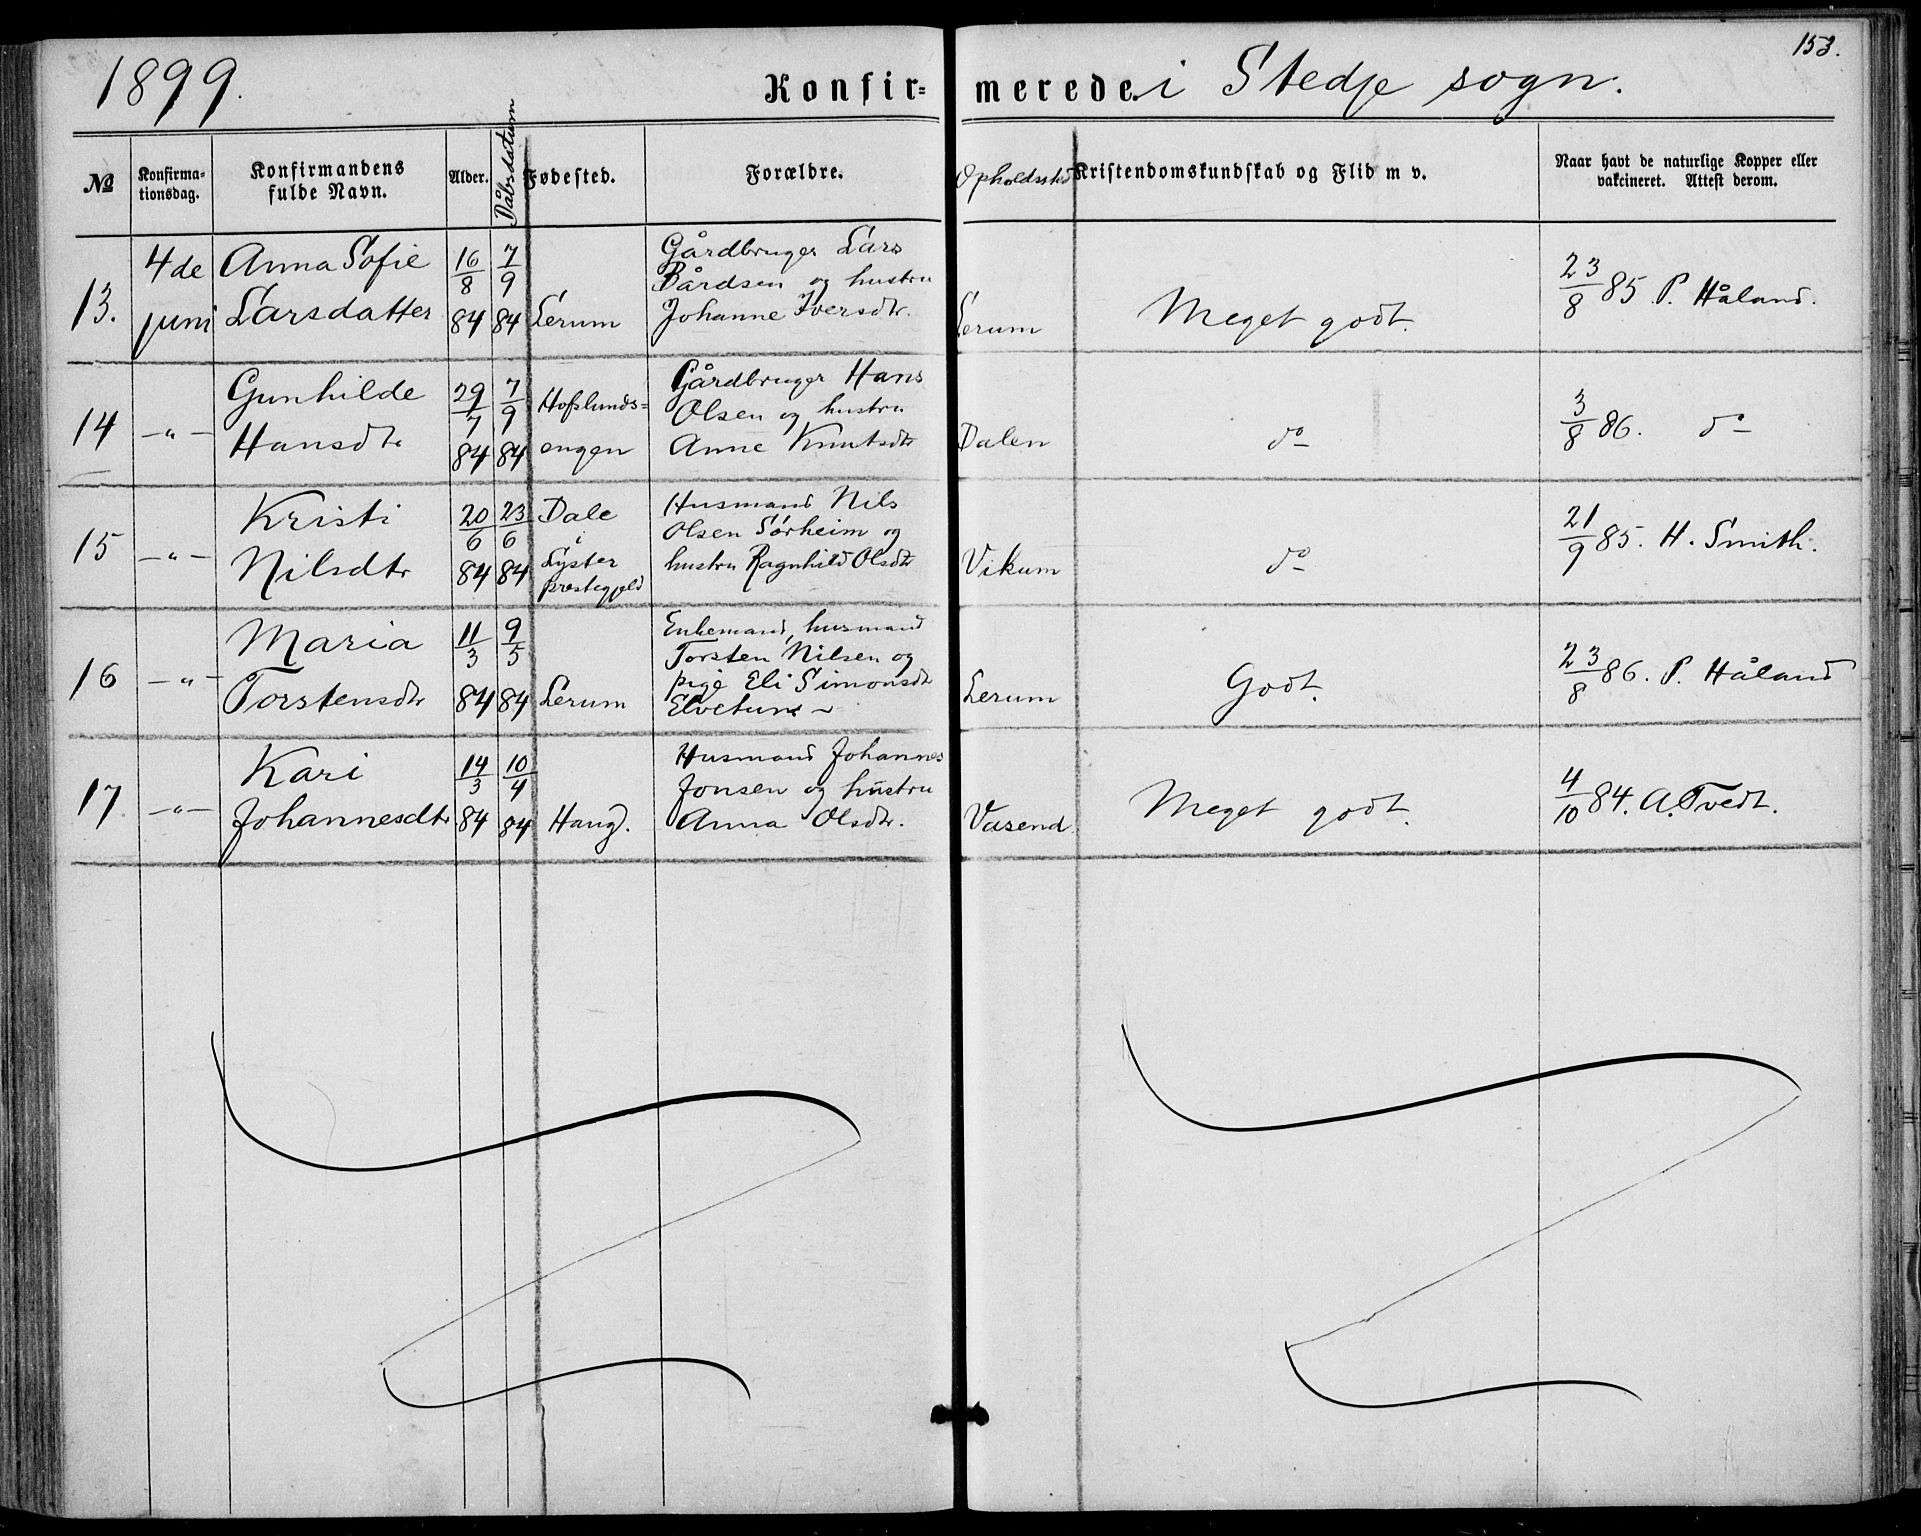 153.
1899. Konfirmerede i Stedje sogn.
№
Konfirmationsdag.
Konfirmandens fulde Navn.
Alder.
Dåbsdatum
Fødested.
Forældre.
Opholdssted
Kristendomskundskab og Flid m v.
Naar havt de naturlige Kopper eller
vakcineret. Attest derom.
13. 4de juni
Anna Sofie
Larsdatter
16/8 84
7/9 84
Lerum
Gårdbruger Lars
Bårdsen og hustru
Johanne Iversdtr.
Lerum
Meget godt.
23/8 85 P. Håland.
14 —„—
Gunhilde
Hansdtr
29/7 84
7/9 84
Hofslunds=
engen
Gårdbruger Hans
Olsen og hustru
Anne Knutsdtr
Dalen
do
3/8 86. do
15 —„—
Kristi
Nilsdtr
20/6 84
23/6 84
Dale
i
Lyster
prestegjeld
Husmand Nils
Olsen Sørheim og
hustru Ragnhild Olsdtr
Vikum
do
21/9 85. H. Smith.
16 —„—
Maria
Torstensdtr
11/3 84
9/5 84
Lerum
Enkemand, husmand
Torsten Nilsen og
pige Eli Simonsdtr
Elvetun
Lerum
Godt.
23/8 86. P. Håland
17. —„—
Kari
Johannesdtr
14/3 84
10/4 84
Haug.
Husmand Johannes
Jonsen og hustru
Anna Olsdtr.
Vasend
Meget godt.
4/10 84. A. Tvedt.